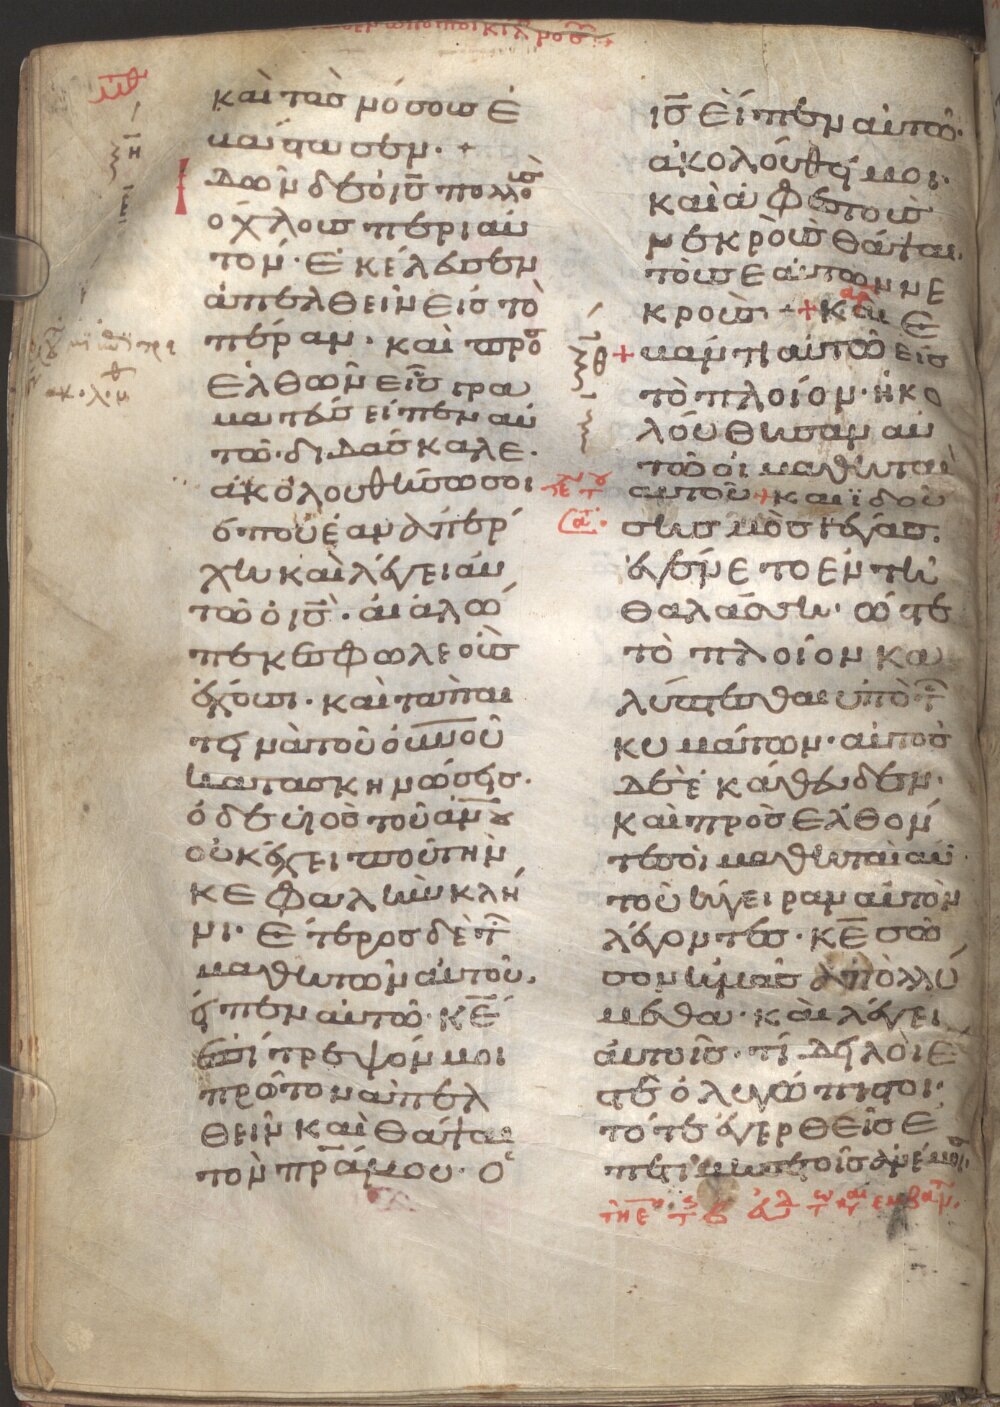 καὶ τὰσ νόσουσ ἐ
βάστασεν · +
Ἰδὼν δὲ ὁ ισ̅ πολλοὺσ
ὄχλουσ περὶ αὐ
τόν · ἐκέλευσεν
ἀπελθεῖν εἰσ τὸ
πέραν · καὶ προσ
ελθὼν εἷσ γραμ
ματεὺσ εἶπεν αὐ
τῶ · διδάσκαλε ·
ἀκολουθήσω σοι
ὅπου ἐὰν ἀπέρ
χη καὶ λέγει αὐ
τῶ ὁ ισ̅ · αἱ ἀλώ
πεκεσ φωλεοὺσ
ἔχουσι · καὶ τὰ πε
τεινὰ τοῦ ουνοῦ
κατασκηνώσεισ ·
ὁ δὲ υἱὸσ τοῦ ανου
οὐκ ἔχει ποῦ τὴν
κεφαλὴν κλί
νη · ἕτεροσ δὲ τ
μαθητῶν αὐτοῦ ·
εἶπεν αὐτῶ · κε̅
ἐπίτρεψόν μοι
πρῶτον ἀπελ
θεῖν καὶ θάψαι
τὸν πρ̅α μου · ὁ
ισ̅ εἶπεν αὐτῶ ·
ἀκολούθει μοι ·
καὶ ἄφεσ τοὺσ
νεκροὺσ θάψαι
τοὺσ ἑαυτῶν νε
κρούσ · + + Καὶ ἐμ
θ + βάντι αὐτῶ εἰσ
τὸ πλοῖον · ἠκο
λούθησαν αὐ
τῶ οἱ μαθηταὶ
αὐτοῦ + καὶ ἰδοὺ
σεισμὸσ μέγασ
ἐγένετο ἐν τῆ
θαλάσση · ὥστε
τὸ πλοῖον κα
λύπτεσθαι ὑπὸ τ
κυμάτων · αὐτὸσ
δὲ ἐκάθευδεν ·
καὶ προσελθόν
τεσ οἱ μαθηταὶ αὐ
τοῦ ἤγειραν αὐτὸν
λέγοντεσ · κε̅ σῶ
σον ἡμᾶσ ἀπολλύ
μεθα · καὶ λέγει
αὐτοῖσ · τί δειλοί ἐσ
τε ὀλιγόπιστοι ·
τότε ἐγερθεὶσ ἐ
πετίμησε τοῖσ ἀνέμοισ